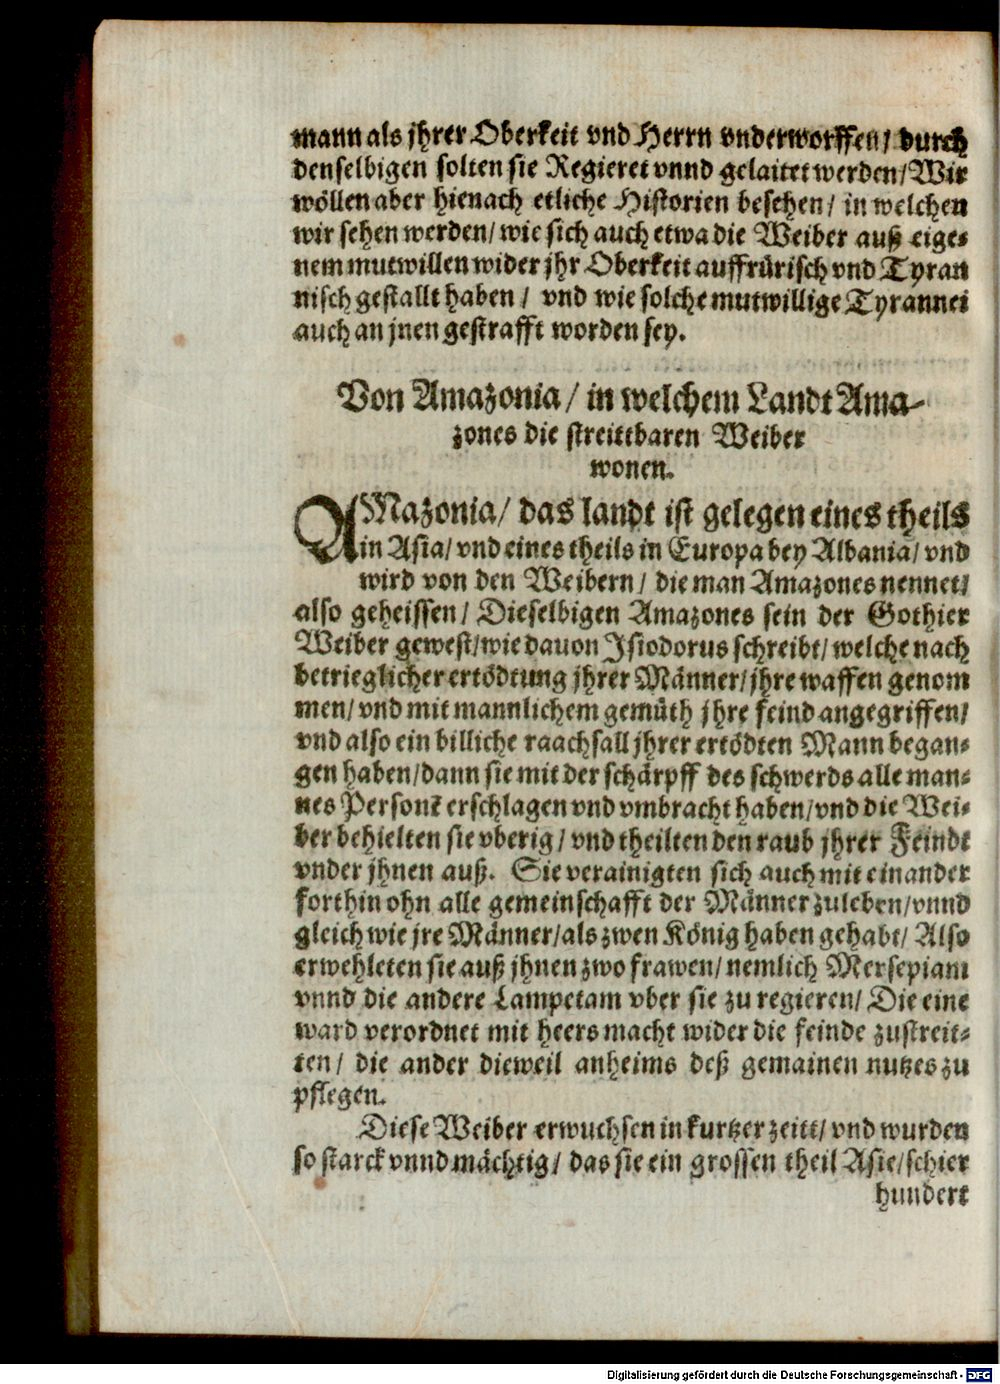 mann als jhrer Oberkeit vnd Herrn vnderworffen / durch
denselbigen solten sie Regieret vnnd gelaitet werden / Wir
wöllen aber hienach etliche Historien besehen / in welchen
wir sehen werden / wie sich auch etwa die Weiber auß eige-
nem mutwillen wider jhr Oberkeit auffrürisch vnd Tyran
nisch gestallt haben / vnd wie solche mutwillige Tyrannei
auch an jnen gestrafft worden sey.
Von Amazonia / in welchem Landt Ama-
zones die streittbaren Weiber
wonen.
AMazonia / das landt ist gelegen eines theils
in Asia / vnd eines theils in Europa bey Albania / vnd
wird von den Weibern / die man Amazones nennet /
also geheissen / Dieselbigen Amazones sein der Gothier
Weiber gewest / wie dauon Isiodorus schreibt / welche nach
betrieglicher ertödtung jhrer Männer / jhre waffen genom
men / vnd mit mannlichem gemüth jhre feind angegriffen /
vnd also ein billiche raach fall jhrer ertödten Mann began-
gen haben / dann sie mit der schärpff des schwerds alle man-
nes Personē erschlagen vnd vmbracht haben / vnd die Wei-
ber behielten sie vberig / vnd theilten den raub jhrer Feindt
vnder jhnen auß. Sie verainigten sich auch mit einander
forthin ohn alle gemeinschafft der Männer zuleben / vnnd
gleich wie jre Männer / als zwen König haben gehabt / Also
erwehleten sie auß jhnen zwo frawen / nemlich Mersepiam
vnnd die andere Lampetam vber sie zu regieren / Die eine
ward verordnet mit heers macht wider die feinde zustreit-
ten / die ander dieweil anheims deß gemainen nutzes zu
pflegen.
Diese Weiber erwuchsen in kurtzer zeitt / vnd wurden
so starck vnnd mächtig / das sie ein grossen theil Asie / schier
hundert
Digitalisierung gefördert durch die Deutsche Forschungsgemeinschaft - DFG